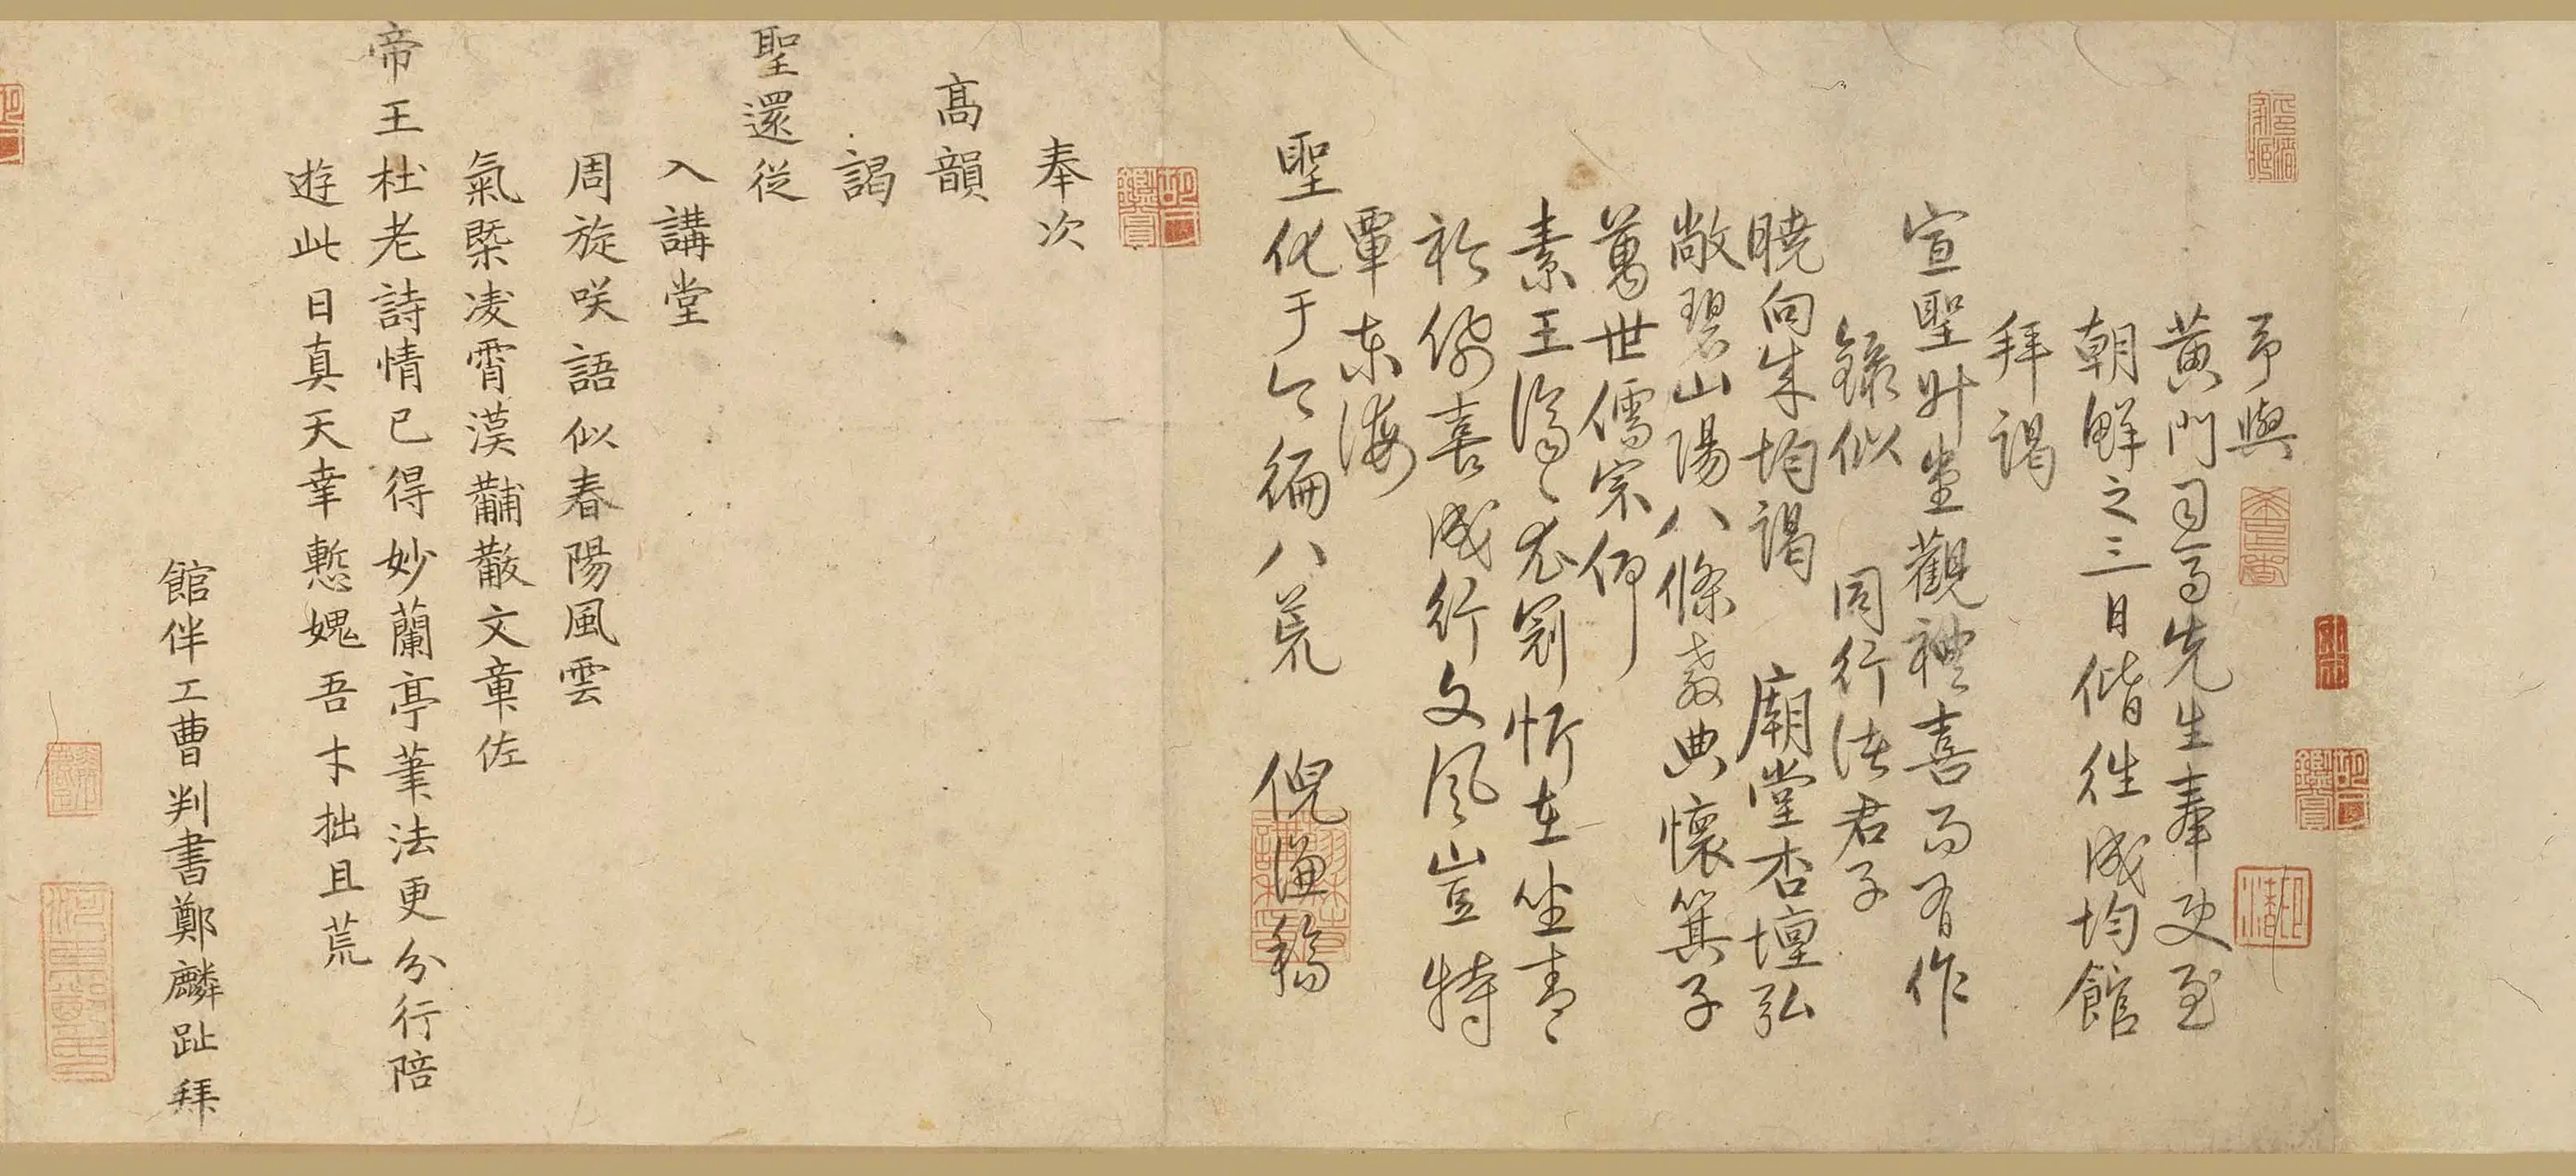 予與
黃門司馬先生奉使至
朝鮮之三日偕徃成均館
拜謁
宣聖升堂觀禮喜而有作
錄似 同行諸君子
曉向成均謁 廟堂杏壇弘
敞碧山陽八條教典懷箕子
萬世儒宗仰
素王濟濟衣冠忻在坐青青
衿佩喜成行文風豈特
覃東海
聖化于今徧八荒 倪謙稿
奉次
高韻
謁
聖還從
入講堂
周旋咲語似春陽風雲
氣槩凌霄漢黼黻文章佐
帝王杜老詩情已得妙蘭亭筆法更分行陪
遊此日真天幸慙媿吾才拙且荒
館伴工曹判書鄭麟趾拜